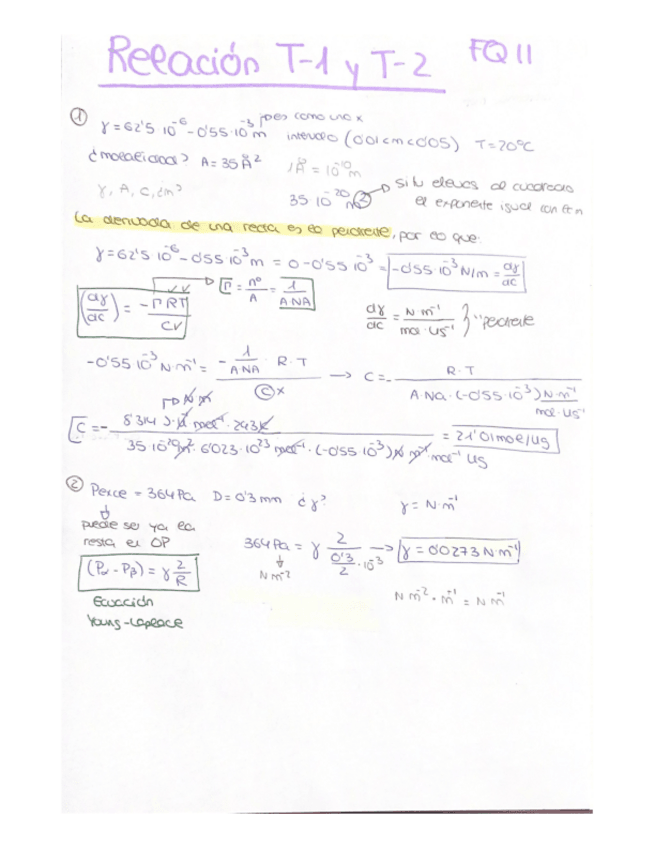 Relación T-1 y T-2 FQ II
① γ = 62'5 10⁻⁶ - 0'55·10⁻³ m como una x intervalo (0'01<m<0'05) T=20ºC
A = 35 Å² 1Å = 10⁻¹⁰ m
γ, A, C, ¿m? 35 10⁻²⁰ m² → si tu elevas al cuadrado el exponente igual con el m
La derivada de una recta es la pendiente, por lo que:
γ = 62'5 10⁻⁶ - 0'55 10⁻³ m = 0 - 0'55 10⁻³ = -0'55·10⁻³ N/m = dγ/dc
(dγ/dc) = -ΓRT/C Γ = nº/A = 1/A·NA
dγ/dc = N·m⁻¹/mol·Ug⁻¹ } "pendiente
-0'55 10⁻³ N·m⁻¹ = - 1/A·NA · R·T / C x → C = - R·T / A·Na·(-0'55·10⁻³) N·m⁻¹/mol·Ug⁻¹
N m
C = - 8'314 J·K⁻¹ mol⁻¹ · 293 K / 35·10⁻²⁰ m² · 6'023·10²³ mol⁻¹ · (-0'55·10⁻³) N m⁻¹ mol⁻¹ Ug = 21'01 mol/Ug
② Pexce = 364 Pa D = 0'3 mm ¿γ? γ = N·m⁻¹
puede ser ya la
resta el ΔP
(Pα - Pβ) = γ 2/R
Ecuación
Young-Laplace
364 Pa = γ 2 / 0'3/2 · 10⁻³ → γ = 0'0273 N·m⁻¹
N m⁻²
N m⁻² · m⁻¹ = N m⁻¹